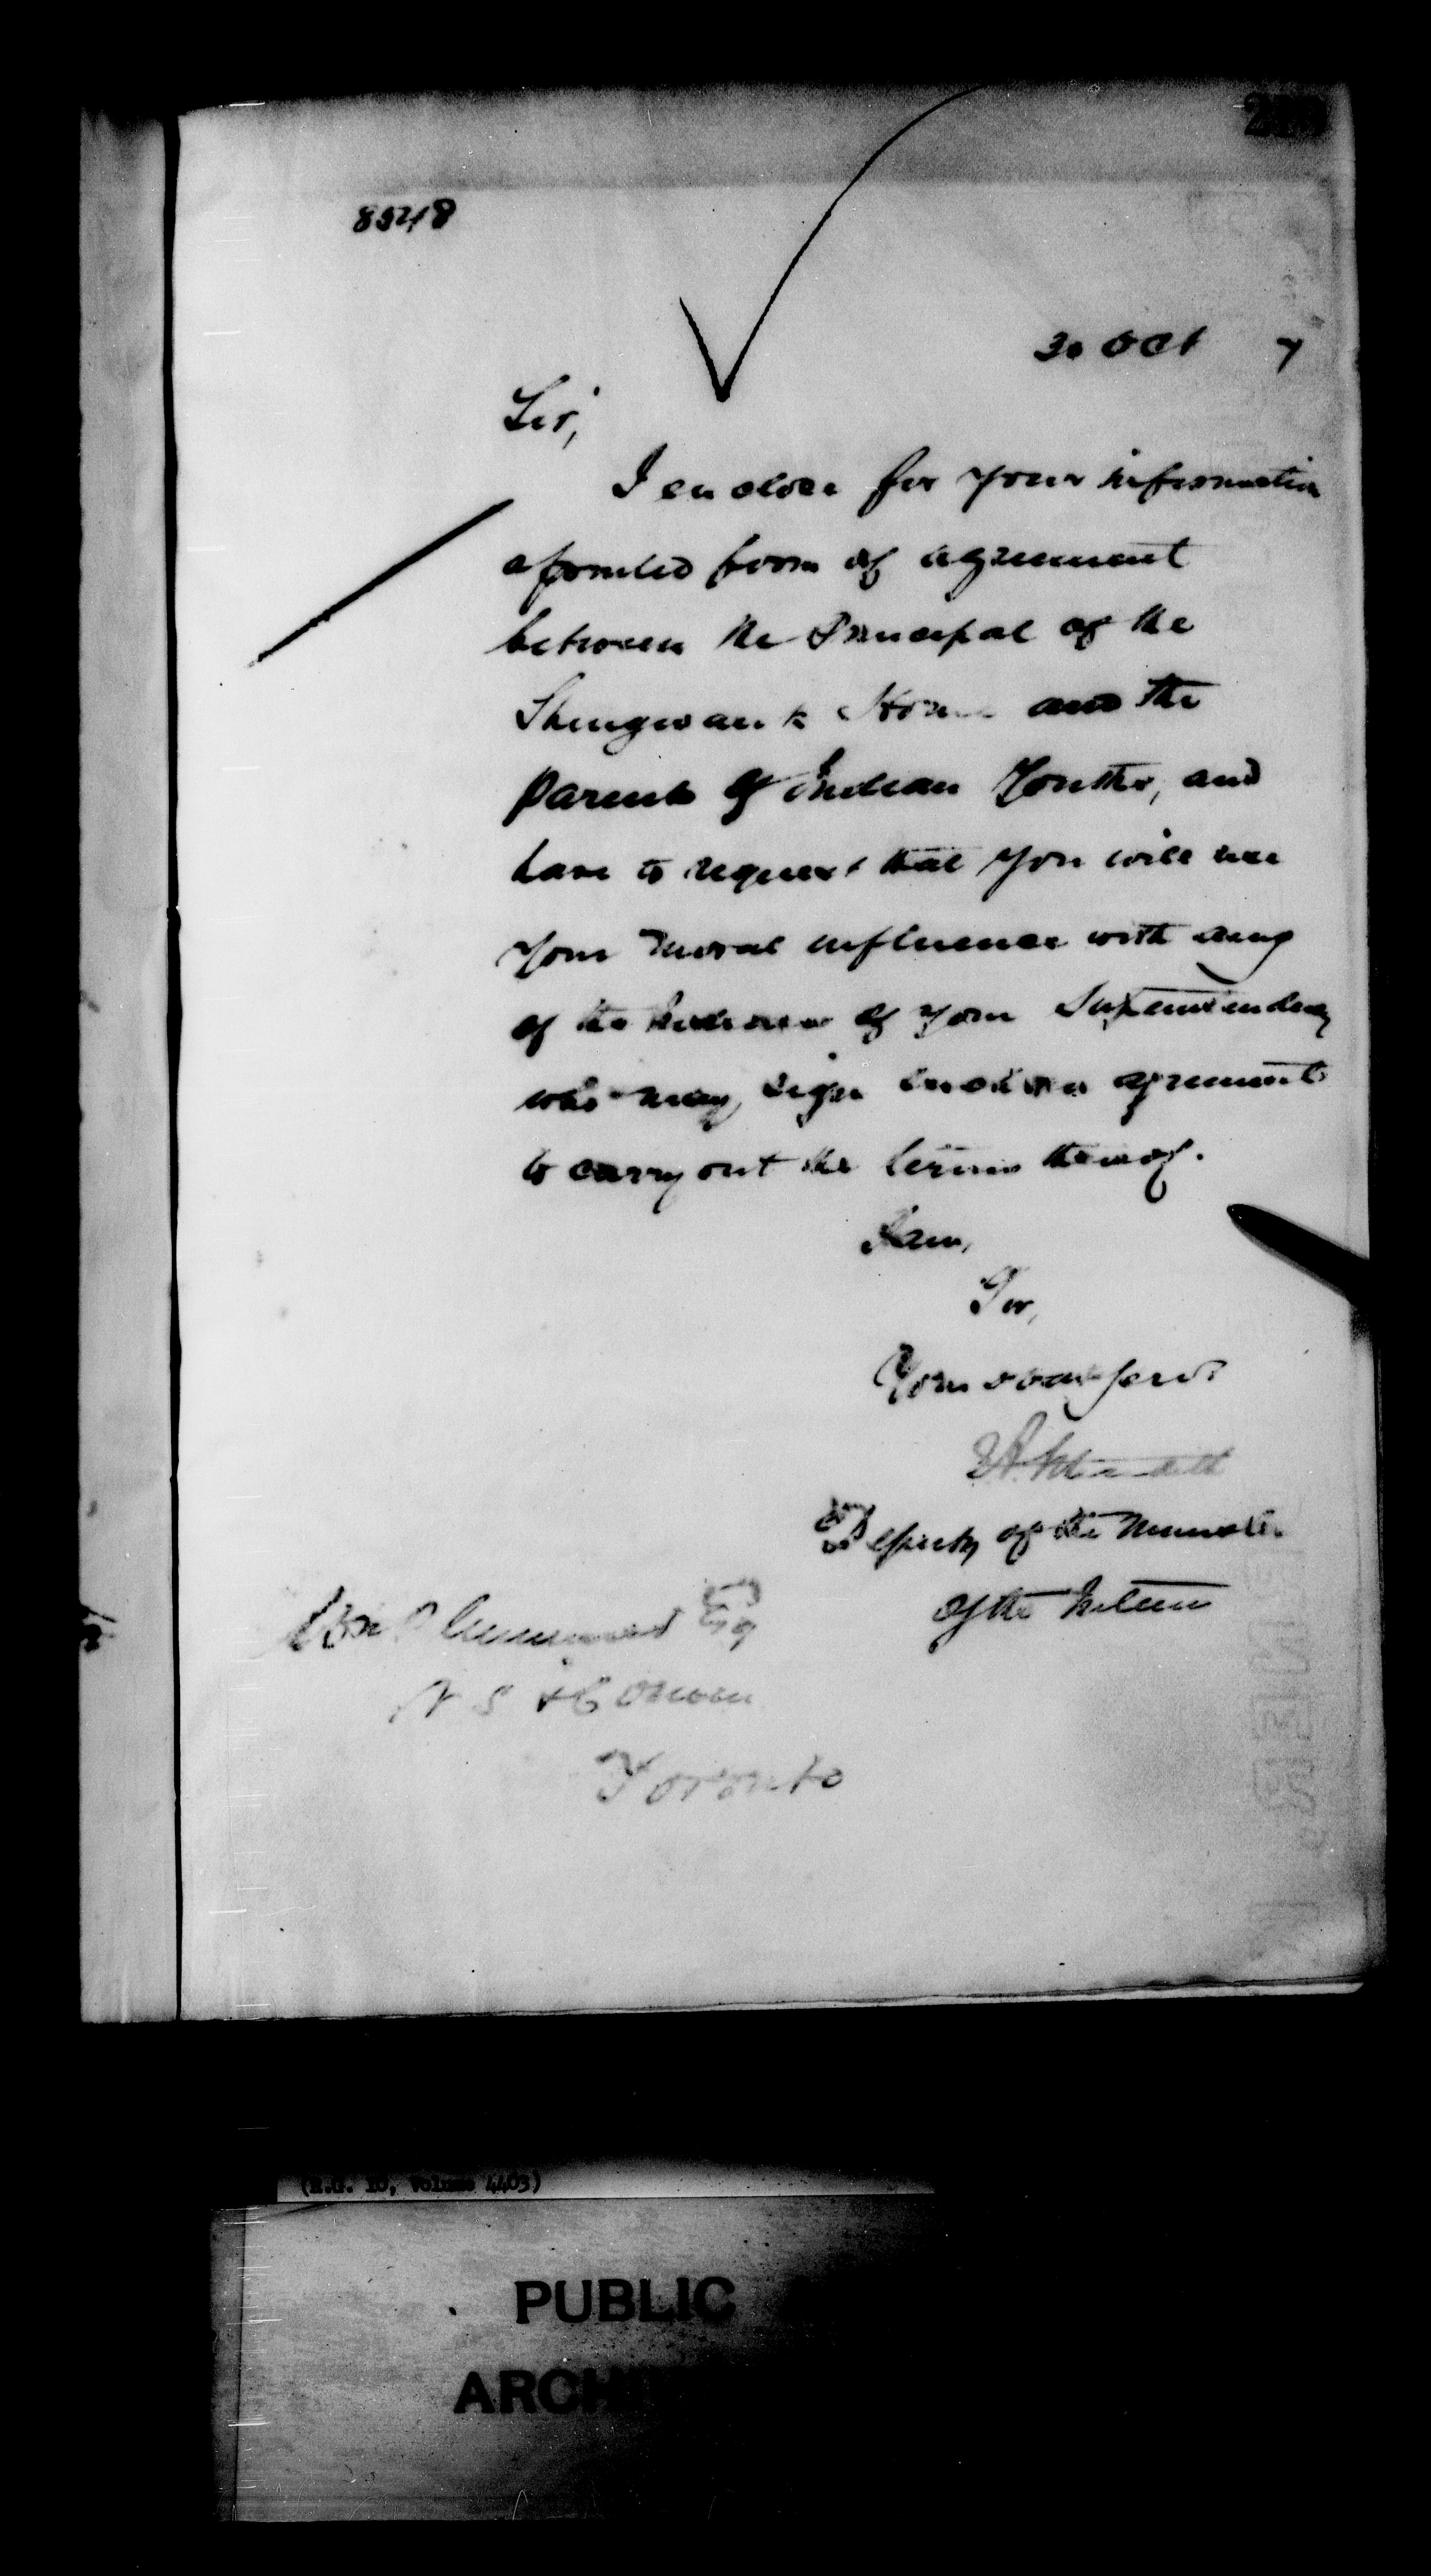 8548
30 Oct 7
Sir,
I enclose for your information
a printed form of agreement
between the Principal of the
Shingwauk Home and the
parents of Indian Youths, and
have to request that you will use
your moral influence with any
of the Indians of your Superintendency
who may sign such an agreement
to carry out the terms thereof.
I am,
Sir,
Your obedt servt
Deputy of the Minister
of the Interior
Wm Plummer Esq
Toronto
(R.G. 10, Volume 4403)
PUBLIC
ARCH